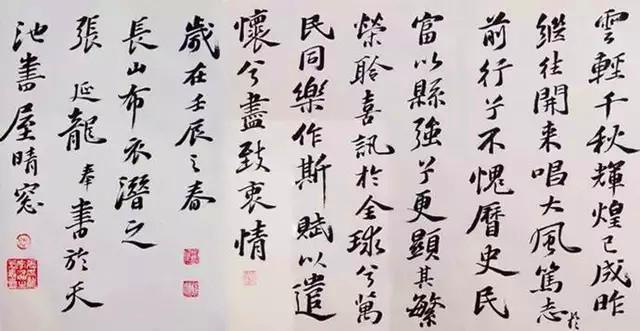 雲輕千秋輝煌已成昨
继往開来唱大風篤志於
前行兮不愧曆史民
富以縣強兮更顯其繁
榮聆喜訊於全球兮萬
民同樂作斯賦以遣
懷兮盡致衷情
歲在壬辰之春
長山布衣潛之
張延龍奉書於天
池書屋晴窓